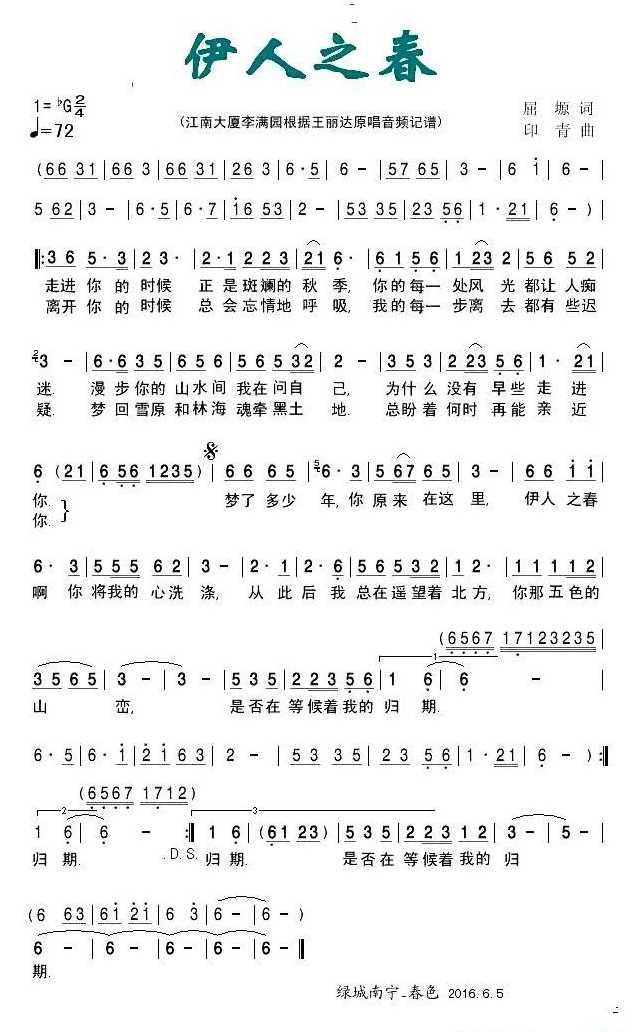 伊人之春
1=♭G 2/4
♩=72
(江南大厦李满园根据王丽达原唱音频记谱)
屈 塬 词
印 青 曲
(66 31 | 66 31 | 23 26 | 6·5 | 6 - | 57 65 | 36 i3 | 6 - |
5 62 | 3 - | 6·6 | 6·7 | i6 53 | 2353 35 | 23 56 | 1·21 | 6 - ) |
‖: 36 5·3 | 23· | 2·1 223 | 21 6· | 61 56 | 12 23 | 56 52 |
走进 你的 时候 正是斑斓的 秋季, 你的每一 处风 光都让人痴
离开 你的 时候 总会忘情地 呼吸, 我的每一 步离 去都有些迟
3 - | 6·6 35 | 65 5532 | 2· 3 | 5353 | 2 23 56 | 1· 21 |
迷. 漫步你的 山水间我在问自 己, 为什么没有 早些 走进
疑. 梦回雪原 和林海魂牵黑土 地. 总盼着何时 再能 亲近
6 (21 | 6 56 1235) | 66 65 | 6· 3 | 5 67 65 | 3 - | 66 ii |
你. 梦了多少 年, 你原来在这里, 伊人之春
你.
6· 3 | 555 62 | 3 - | 2·2 12 | 35 556 | 2·3 | 5 555 |
啊 你将我的 心洗涤, 从此后我 总在遥望着北方, 你那五色的
(6567 17123235
1
35 65 | 3 - | 3 - | 535 | 223 56 | 1 6 | 6· :‖
山 峦, 是否在等候着我的 归期.
6·5 | 6·i | 2i 63 | 2· 3 | 2353 | 22 35 | 1·21 | 6 - ) :‖
(6567 1712)
2
3
1 6 | 6 - :‖ 16 | (61 23) | 535 223 12 | 3 - | 5 - |
归期. D.S. 归期. 是否在等候着我的 归
(6 63 | 6i 2i | 6 3 | 6 - | 6 - )
6 - | 6 - | 6 - | 6 - | 6 - ‖
期.
绿城南宁-春色 2016.6.5